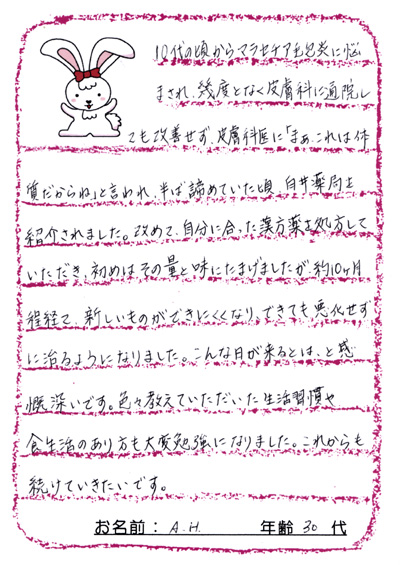 10代の頃からマラセチア毛包炎に悩
まされ、幾度となく皮膚科に通院し
ても改善せず、皮膚科医に「まぁ、これは体
質だからね」と言われ、半ば諦めていた頃、臼井薬局を
紹介されました。改めて、自分に合った漢方薬を処方して
いただき、初めはその量と味にたまげましたが、約10ヶ月
程経て、新しいものができにくくなり、できても悪化せず
に治るようになりました。こんな日が来るとは、と感
慨深いです。色々教えていただいた生活習慣や
食生活のあり方も大変勉強になりました。これからも
続けていきたいです。
お名前： A.H. 年齢 30 代